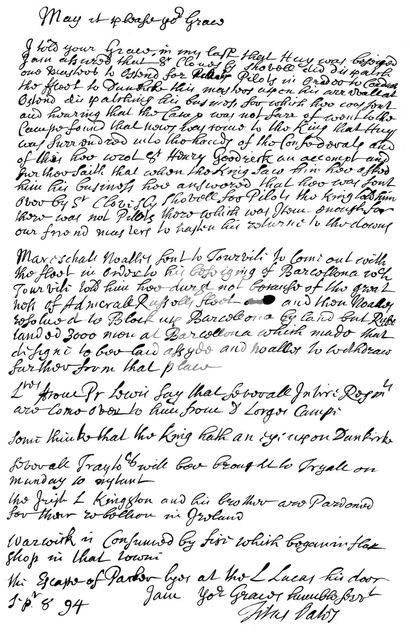 May it please yor Grace
I told your Grace in my last that Huy was besieged
I am assured that Sr Clovesly Shovell did dispatch
one Masters to Ostend for Pilots in order to
the fleet to Dunkirke this masters upon his arrivall at
Ostend dispatching his business for which hee was sent
and hearing that the Camp was not farr of went to the
Campe found that news was come to the King that Huy
was surrendred into the hands of the Confederats and
of this hee wrot Sr Henry Goodrick an accompt and
further saith that when the King saw him hee asked
him his business hee answered that hee was sent
over by Sr Clovesly Shovell for Pilots the King told him
there was not Pilots there which was them enough for
our friend masters to hasten his returne to the downs
Mareschall Noailles sent to Tourvill to come out with
the fleet in order to his besieging of Barcellona
Tourvill told him hee durst not because of the great
ness of Admirall Russells fleet and then Noailles
resolved to Block up Barcellona by land but Russ
landed 3000 men at Barcellona which made that
designe to bee laid asyde and Noailles to withdraw
further from that place
Lres from Pr Lewis say that severall Intire Regmts
are come over to him from D Lorges Campe
some thinke that the King hath an eye upon Dunkirke
severall Traytors will bee brought to Tryall on
munday
the Irish L Kingston and his brother are Pardoned
for their rebellion in Ireland
Warwick is Consumed by fire which began in flax
shop in that towne
the Escape of Parker lyes at the L Lucas his door
Sepr 8 94 I am yor Graces humble servt
Titus Oates